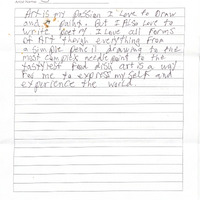 Art is my passion I Love to Draw
and paint. But I Also Love to
write Poetry I Love all forms
of Art though everything from
a simple pencil drawing to the
most complex needle point to the
tastyiest food dish art is a way
for me to express my self and
experience the world.